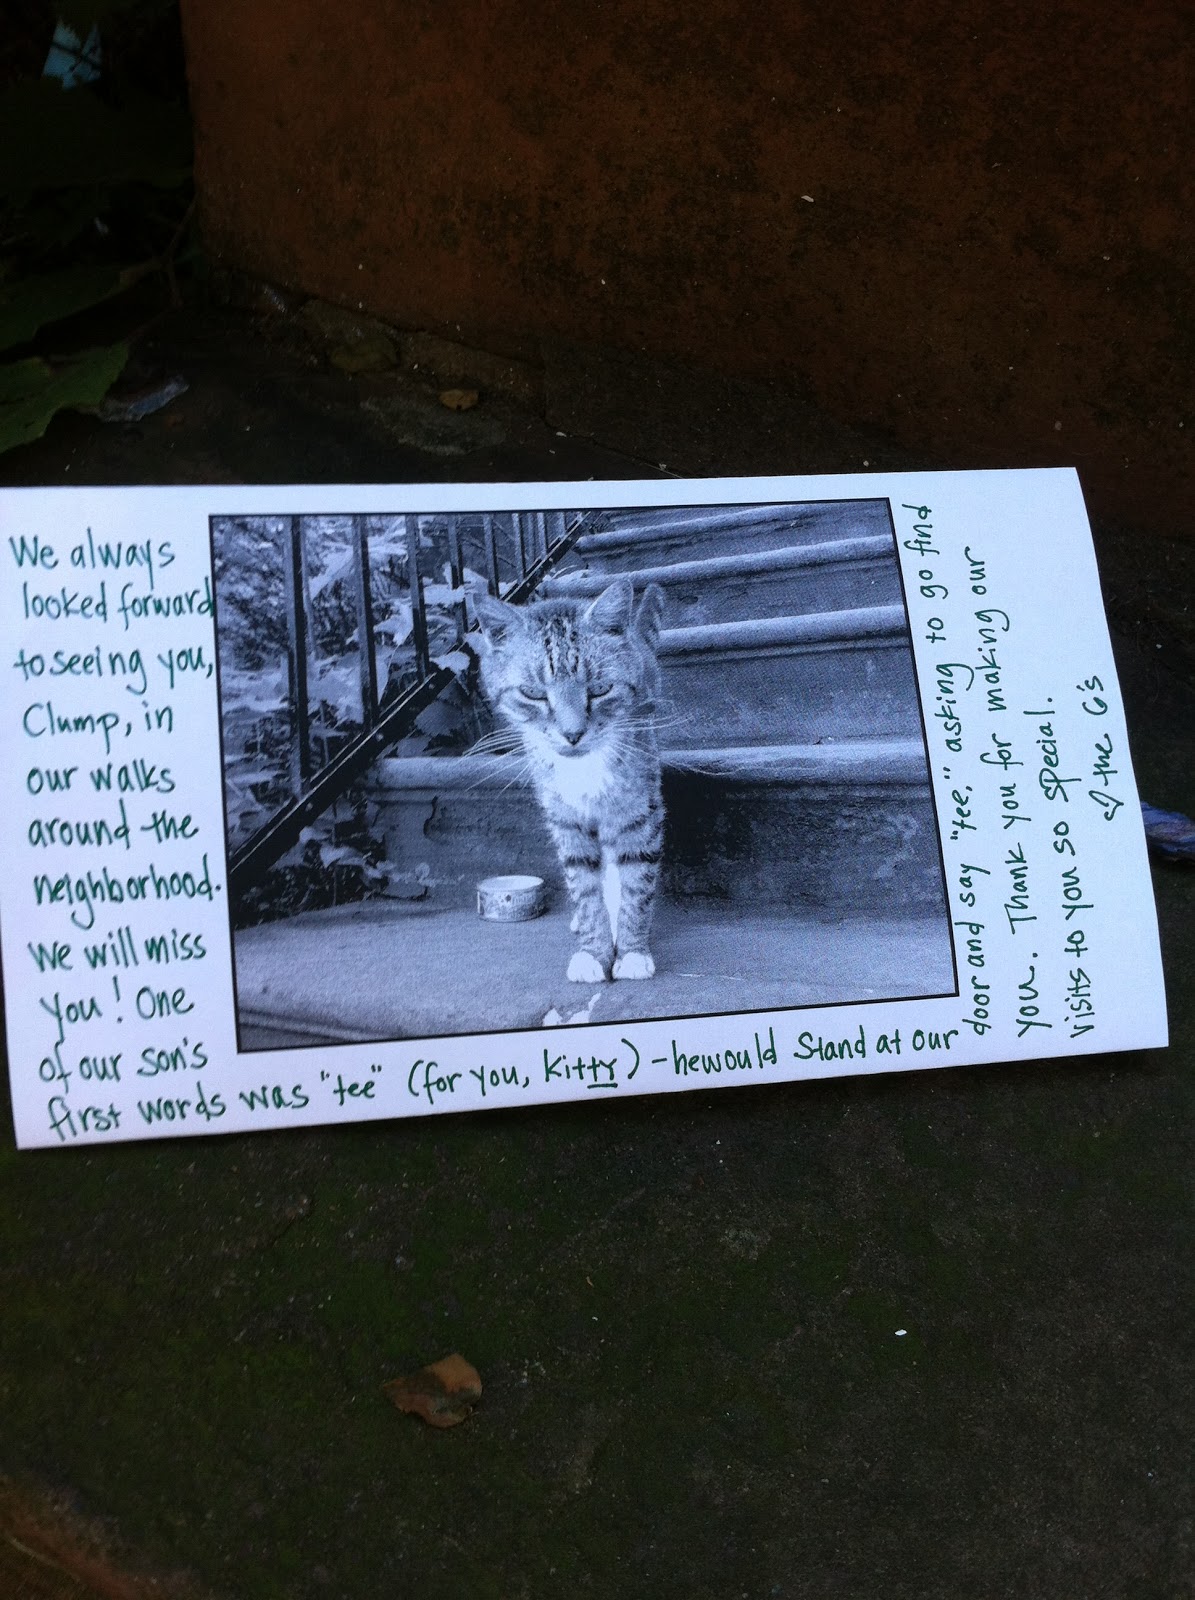 We always
looked forward
to seeing you,
Clump, in
our walks
around the
neighborhood.
We will miss
you! One
of our son's
first words was "tee" (for you, kitty) - he would stand at our
door and say "tee," asking to go find
you. Thank you for making our
visits to you so special.
♡ the G's